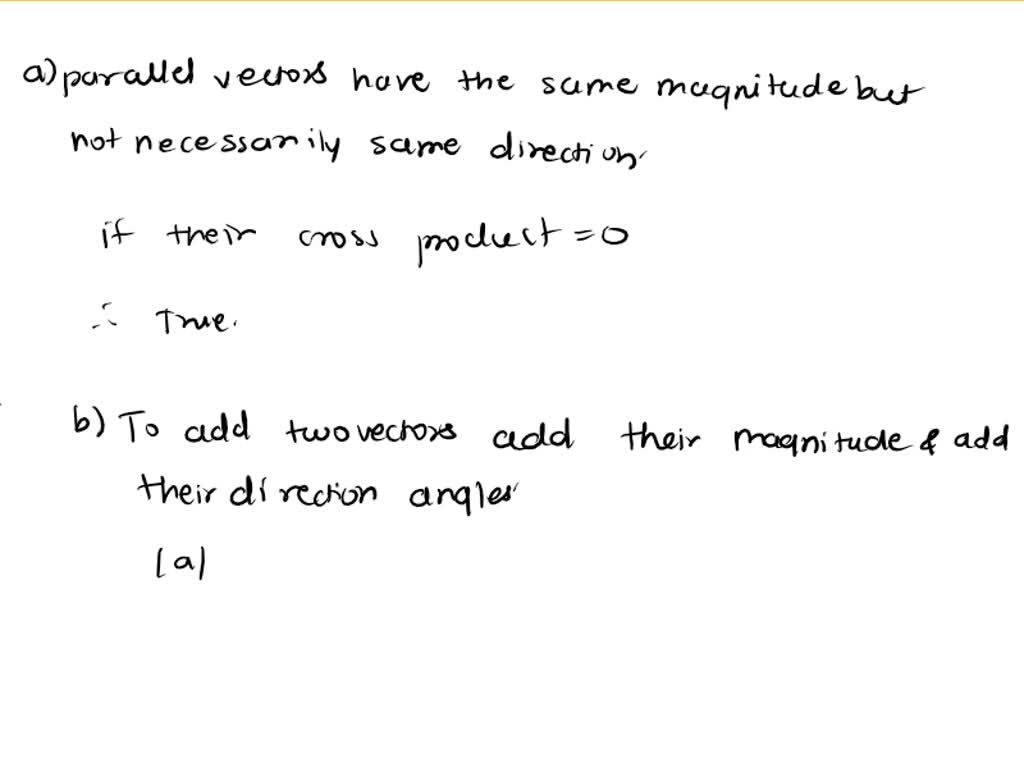 a) parallel vectors have the same magnitude but
not necessarily same direction
if their cross product = 0
∴ True.
b) To add two vectors add their magnitude & add
their direction angles
|a|